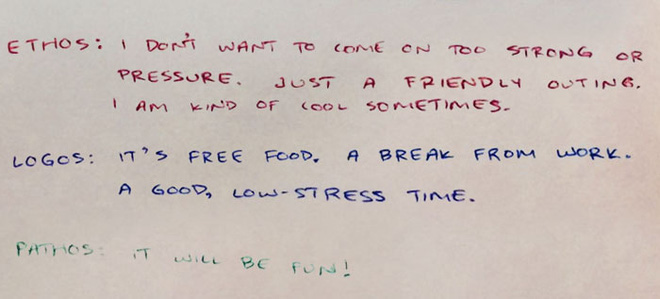 ETHOS: I DON'T WANT TO COME ON TOO STRONG OR
PRESSURE. JUST A FRIENDLY OUTING.
I AM KIND OF COOL SOMETIMES.
LOGOS: IT'S FREE FOOD. A BREAK FROM WORK.
A GOOD, LOW-STRESS TIME.
PATHOS: IT WILL BE FUN!